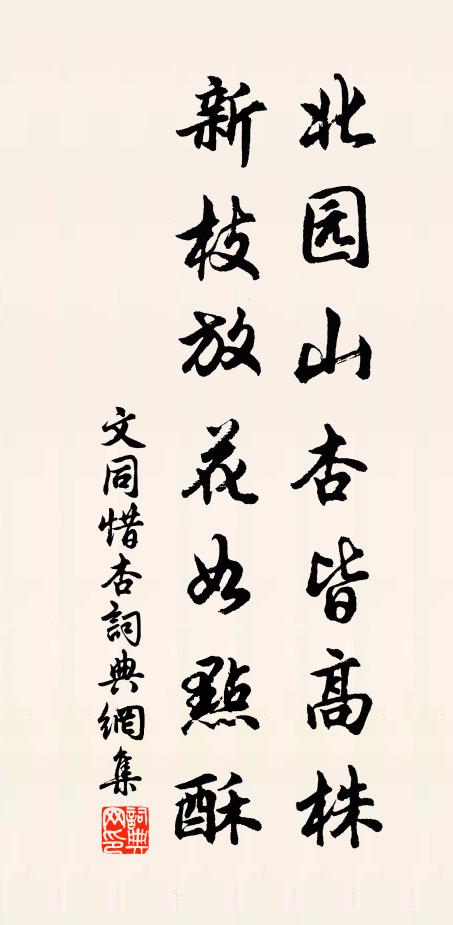 北园山杏皆高株
新枝放花如點酥
文同惜杏詞典網集
詞典網印